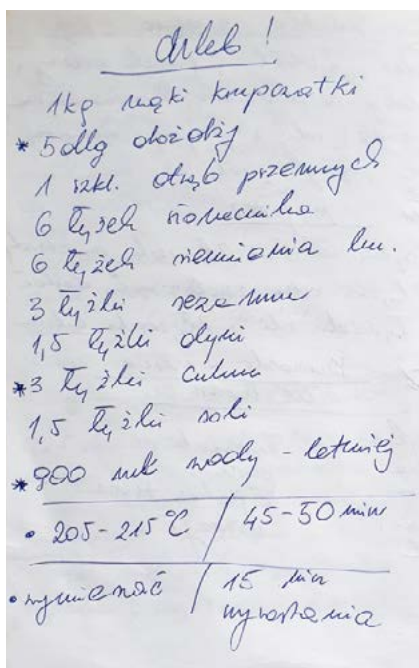 Chleb!
1kg mąki krupczatki
* 5dkg drożdży
1 szkl. otrąb pszennych
6 łyżek słonecznika
6 łyżek siemienia ln.
3 łyżki sezamu
1,5 łyżki dyni
* 3 łyżki cukru
1,5 łyżki soli
* 900 ml wody - letniej
• 205-215°C / 45-50 min
• wymieszać / 15 min
wyrastania